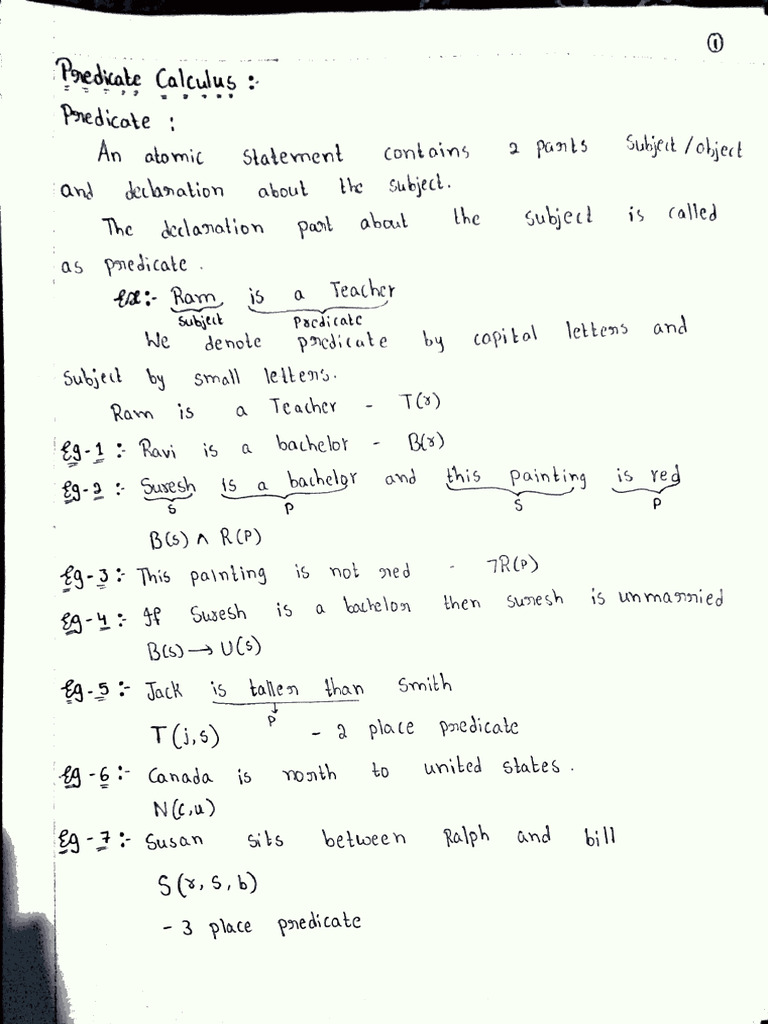 ①
Predicate Calculus :-
Predicate :
An atomic statement contains 2 parts subject/object
and declaration about the subject.
The declaration part about the subject is called
as predicate.
Ex:- Ram is a Teacher
Subject Predicate
We denote predicate by capital letters and
subject by small letters.
Ram is a Teacher - T(r)
Eg-1 :- Ravi is a bachelor - B(r)
Eg-2 :- Suresh is a bachelor and this painting is red
S P S P
B(s) ∧ R(p)
Eg-3 :- This painting is not red - ⅂R(p)
Eg-4 :- If Suresh is a bachelor then suresh is unmarried
B(s) → U(s)
Eg-5 :- Jack is taller than Smith
P
T(j,s) - 2 place predicate
Eg-6 :- Canada is north to united states.
N(c,u)
Eg-7 :- Susan sits between Ralph and bill
S(r, s, b)
- 3 place predicate